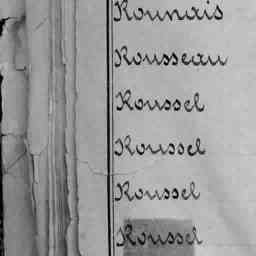 Rounais
Rousseau
Roussel
Roussel
Roussel
Roussel